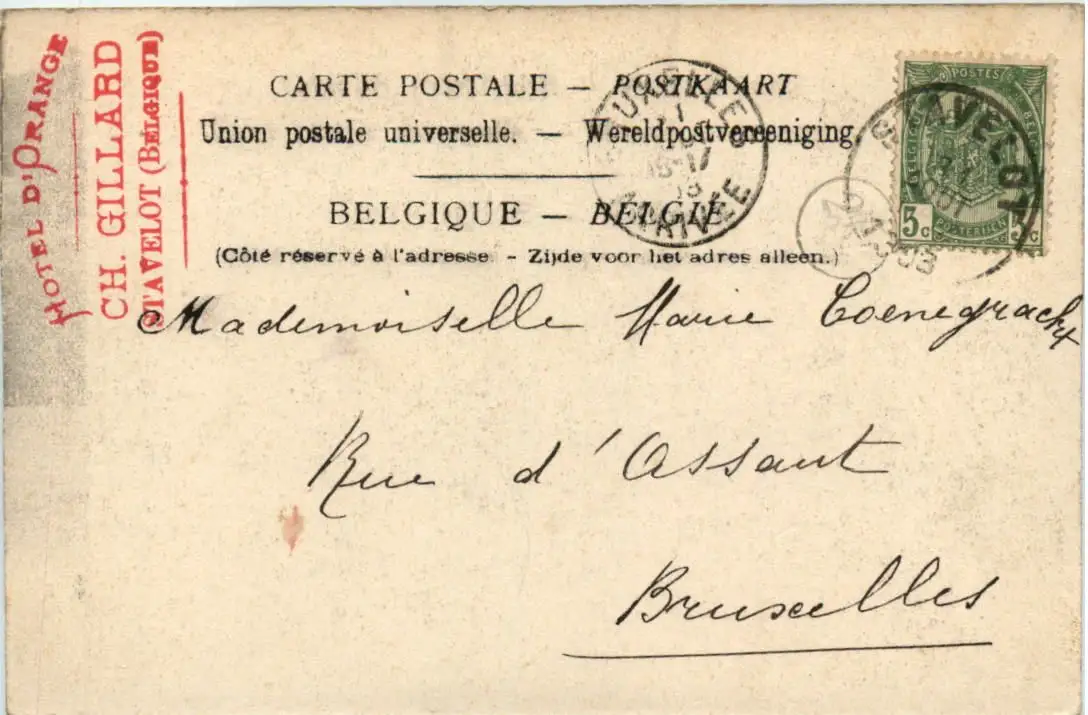 HOTEL D'ORANGE
CH. GILLARD
STAVELOT (BELGIQUE)
CARTE POSTALE — POSTKAART
Union postale universelle. — Wereldpostvereeniging.
BELGIQUE — BELGIË
(Côté réservé à l'adresse. - Zijde voor het adres alleen.)
BRUXELLES
16-17
ARRIVÉE
POSTES
BELGIQUE
BELGIË
5c 5c
POSTERIJEN
STAVELOT
Mademoiselle Marie Coenegrachx
Rue d'Assaut
Bruxelles